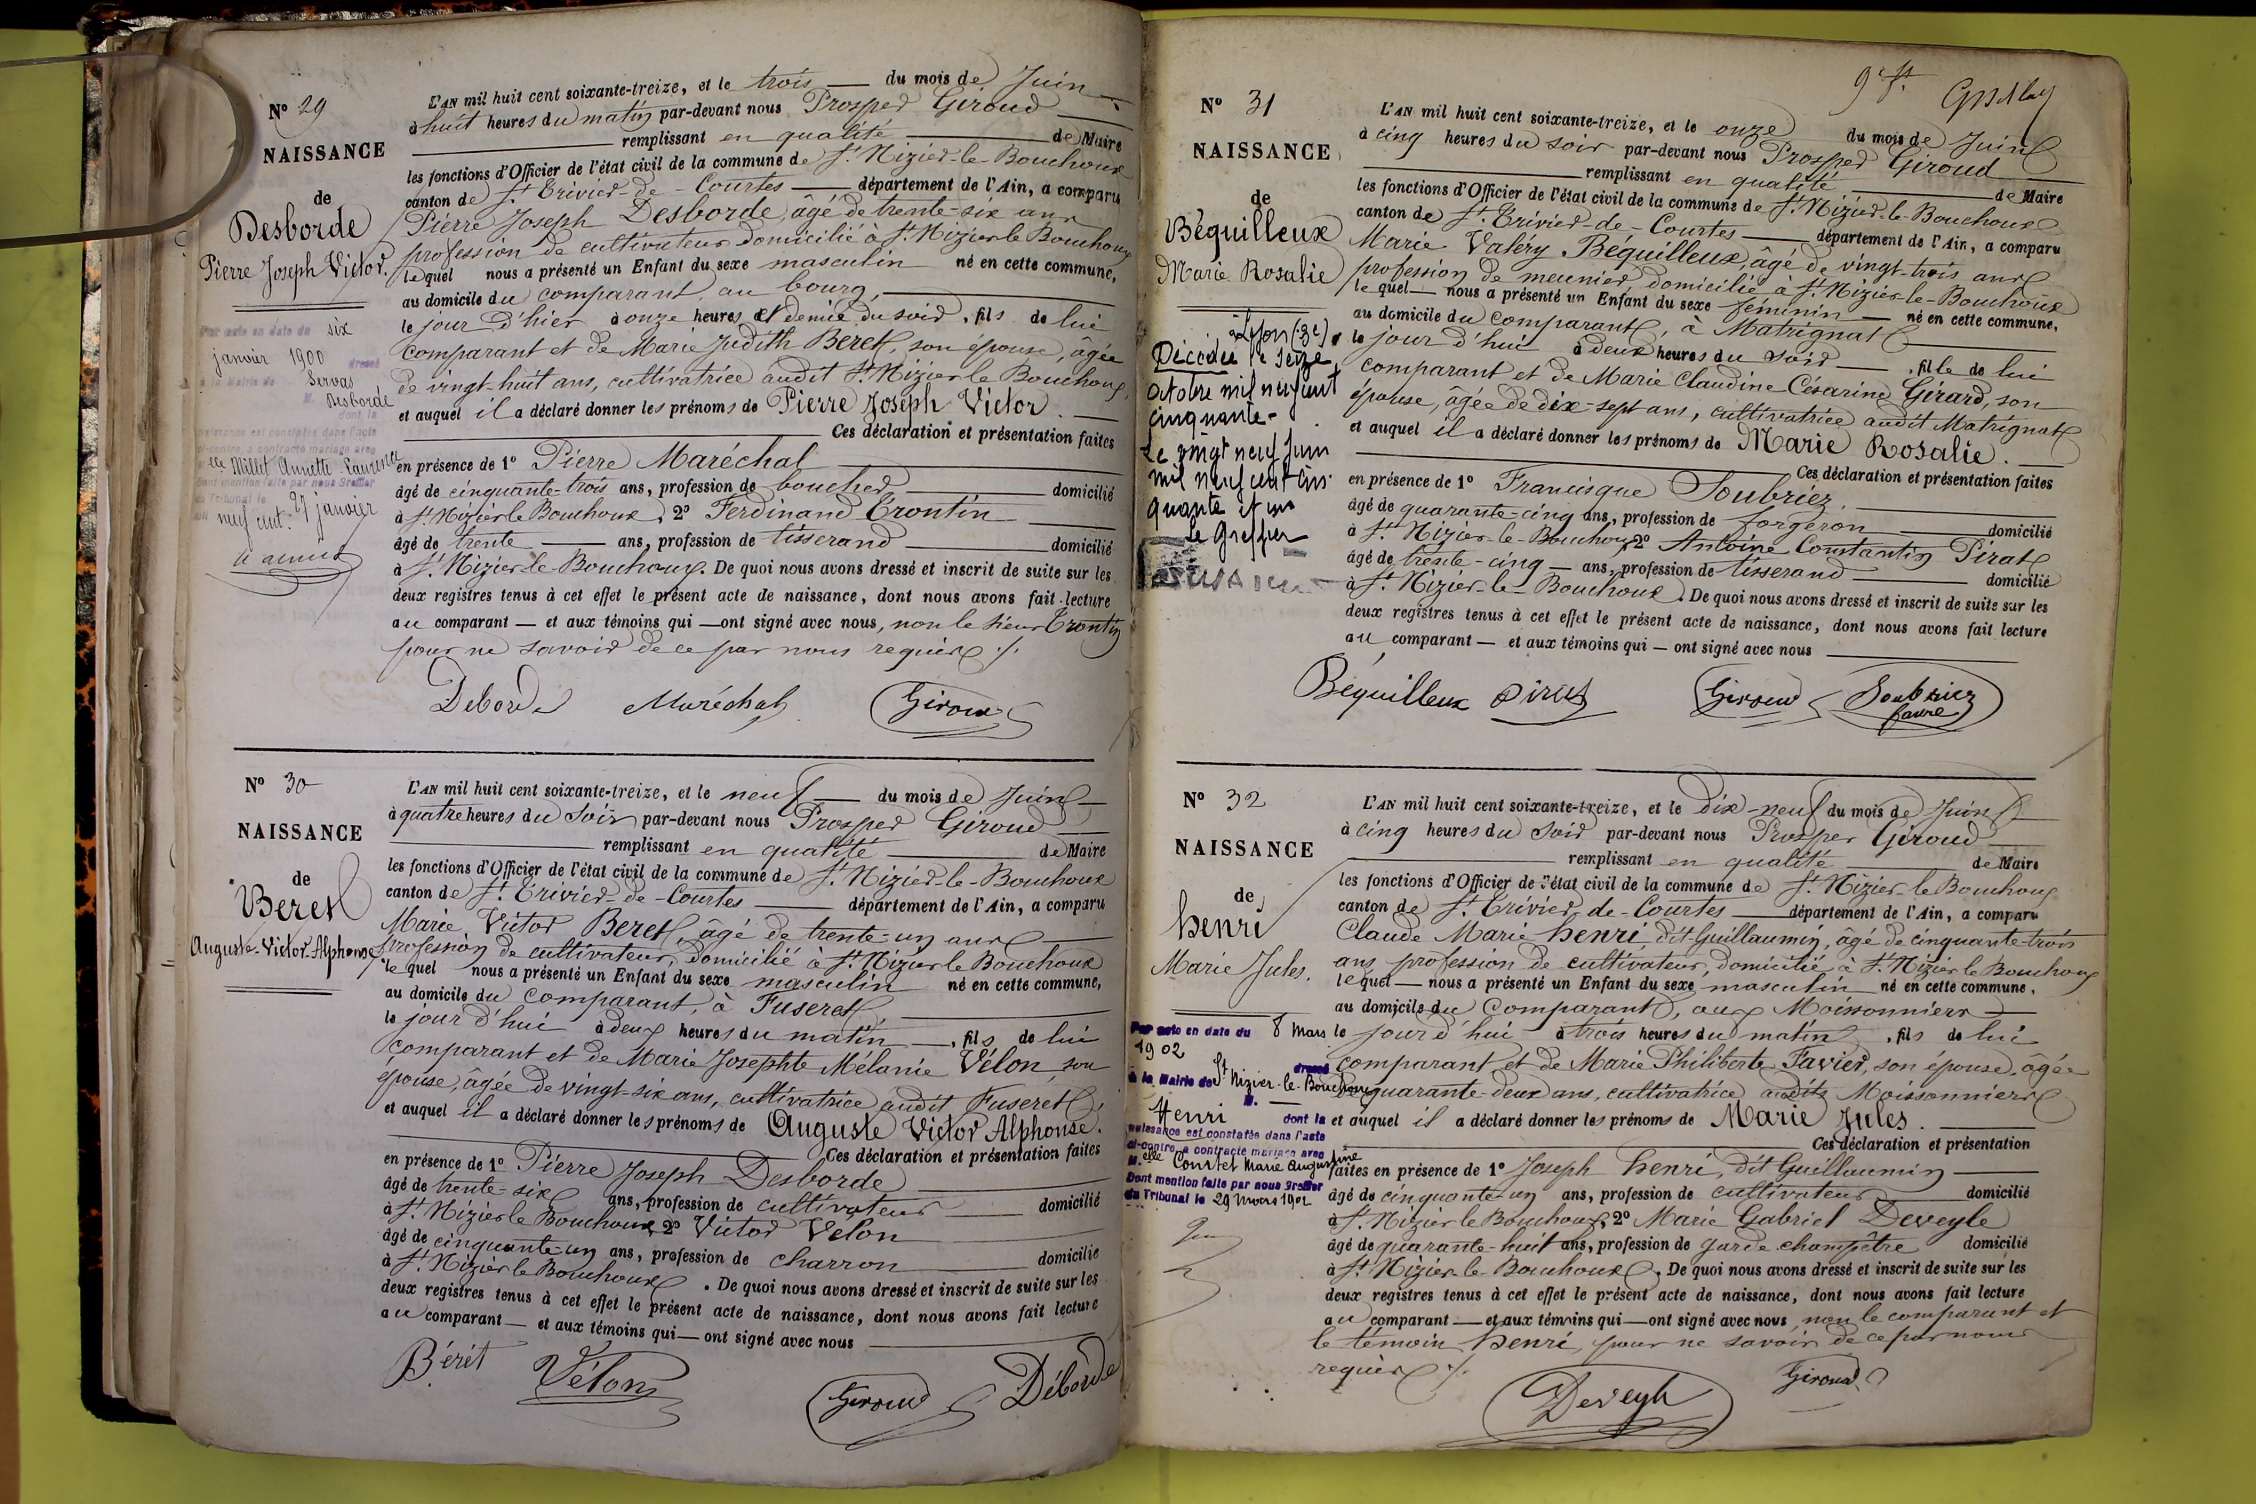 N° 29
NAISSANCE
de
Desborde
Pierre Joseph Victor.
Par acte en date du six
janvier 1900 dressé
à la Mairie de Servas
M. Desborde
dont la
naissance est constatée dans l'acte
ci-contre, a contracté mariage avec
elle Millet Annette Laurence
Dont mention faite par nous Greffier
du Tribunal le 27 janvier
neuf cent.
L'AN mil huit cent soixante-treize, et le trois du mois de Juin
à huit heures du matin par-devant nous Prosper Giroud
remplissant en qualité de Maire
les fonctions d'Officier de l'état civil de la commune de St Nizier-le-Bouchoux
canton de St Trivier-de-Courtes département de l'Ain, a comparu
Pierre Joseph Desborde, âgé de trente-six ans
profession de cultivateur domicilié à St Nizier le Bouchoux
lequel nous a présenté un Enfant du sexe masculin né en cette commune,
au domicile du comparant, au bourg,
le jour d'hier à onze heures et demie du soir, fils de lui
comparant et de Marie Judith Beret, son épouse, âgée
de vingt-huit ans, cultivatrice audit St Nizier le Bouchoux,
et auquel il a déclaré donner les prénoms de Pierre Joseph Victor.
Ces déclaration et présentation faites
en présence de 1° Pierre Maréchal
âgé de cinquante-trois ans, profession de boucher domicilié
à St Nizier le Bouchoux, 2° Ferdinand Trontin
âgé de trente ans, profession de tisserand domicilié
à St Nizier-le-Bouchoux. De quoi nous avons dressé et inscrit de suite sur les
deux registres tenus à cet effet le présent acte de naissance, dont nous avons fait lecture
au comparant et aux témoins qui ont signé avec nous, non le sieur Trontin
pour ne savoir de ce par nous requis ./.
Debord Maréchal Giroud
N° 30
NAISSANCE
de
Beret
Auguste-Victor-Alphonse
L'AN mil huit cent soixante-treize, et le neuf du mois de Juin
à quatre heures du soir par-devant nous Prosper Giroud
remplissant en qualité de Maire
les fonctions d'Officier de l'état civil de la commune de St Nizier-le-Bouchoux
canton de St Trivier-de-Courtes département de l'Ain, a comparu
Marie Victor Beret, âgé de trente-un ans
profession de cultivateur, domicilié à St Nizier le Bouchoux
lequel nous a présenté un Enfant du sexe masculin né en cette commune,
au domicile du comparant, à Fuseret,
le jour d'hui à deux heures du matin, fils de lui
comparant et de Marie Josephte Mélanie Vélon, son
épouse, âgée de vingt-six ans, cultivatrice audit Fuseret,
et auquel il a déclaré donner les prénoms de Auguste Victor Alphonse.
Ces déclaration et présentation faites
en présence de 1° Pierre Joseph Desborde
âgé de trente-six ans, profession de cultivateur domicilié
à St Nizier le Bouchoux, 2° Victor Velon
âgé de cinquante-un ans, profession de charron domicilié
à St Nizier le Bouchoux. De quoi nous avons dressé et inscrit de suite sur les
deux registres tenus à cet effet le présent acte de naissance, dont nous avons fait lecture
au comparant et aux témoins qui ont signé avec nous
Bérét Vélon Giroud Déborde
9e ft.
N° 31
NAISSANCE
de
Béquilleux
Marie Rosalie
à Lyon (3e)
Décédée le seize
octobre mil neuf cent
cinquante-
Le vingt neuf Juin
mil neuf cent cin-
quante et un
Le Greffier
L'AN mil huit cent soixante-treize, et le onze du mois de Juin
à cinq heures du soir par-devant nous Prosper Giroud
remplissant en qualité de Maire
les fonctions d'Officier de l'état civil de la commune de St Nizier-le-Bouchoux
canton de St Trivier-de-Courtes département de l'Ain, a comparu
Marie Valéry Béquilleux, âgé de vingt-trois ans
profession de meunier, domicilié à St Nizier-le-Bouchoux
lequel nous a présenté un Enfant du sexe féminin né en cette commune,
au domicile du comparant, à Matrignat
le jour d'hui à deux heures du soir, fille de lui
comparant et de Marie Claudine Césarine Gérard, son
épouse, âgée de dix-sept ans, cultivatrice audit Matrignat
et auquel il a déclaré donner les prénoms de Marie Rosalie.
Ces déclaration et présentation faites
en présence de 1° Francisque Soubriez
âgé de quarante-cinq ans, profession de forgeron domicilié
à St Nizier-le-Bouchoux, 2° Antoine Constantin Pirat
âgé de trente-cinq ans, profession de tisserand domicilié
à St Nizier-le-Bouchoux. De quoi nous avons dressé et inscrit de suite sur les
deux registres tenus à cet effet le présent acte de naissance, dont nous avons fait lecture
au comparant et aux témoins qui ont signé avec nous
Béquilleux Pirat Giroud Soubriez
favre
N° 32
NAISSANCE
de
henri
Marie Jules.
Par acte en date du 8 Mars
1902 dressé
à la Mairie de St Nizier-le-Bouchoux
M.
Henri dont la
naissance est constatée dans l'acte
ci-contre, a contracté mariage avec
M.elle Courtet Marie Augustine
Dont mention faite par nous Greffier
du Tribunal le 29 mars 1902
L'AN mil huit cent soixante-treize, et le dix-neuf du mois de Juin
à cinq heures du soir par-devant nous Prosper Giroud
remplissant en qualité de Maire
les fonctions d'Officier de l'état civil de la commune de St Nizier-le Bouchoux
canton de St Trivier-de-Courtes département de l'Ain, a comparu
Claude Marie henri, dit Guillaumin, âgé de cinquante-trois
ans profession de cultivateur, domicilié à St Nizier le Bouchoux
lequel nous a présenté un Enfant du sexe masculin né en cette commune,
au domicile du comparant, aux Moissonniers
le jour d'hui à trois heures du matin, fils de lui
comparant et de Marie Philiberte Favier, son épouse, âgée
de quarante-deux ans, cultivatrice audits Moissonniers
et auquel il a déclaré donner les prénoms de Marie Jules.
Ces déclaration et présentation
faites en présence de 1° Joseph henri, dit Guillaumin
âgé de cinquante-un ans, profession de cultivateur domicilié
à St Nizier le Bouchoux, 2° Marie Gabriel Deveyle
âgé de quarante-huit ans, profession de garde champêtre domicilié
à St Nizier-le-Bouchoux. De quoi nous avons dressé et inscrit de suite sur les
deux registres tenus à cet effet le présent acte de naissance, dont nous avons fait lecture
au comparant et aux témoins qui ont signé avec nous, non le comparant et
le témoin henri, pour ne savoir de ce par nous
requis ./.
Deveyle Giroud